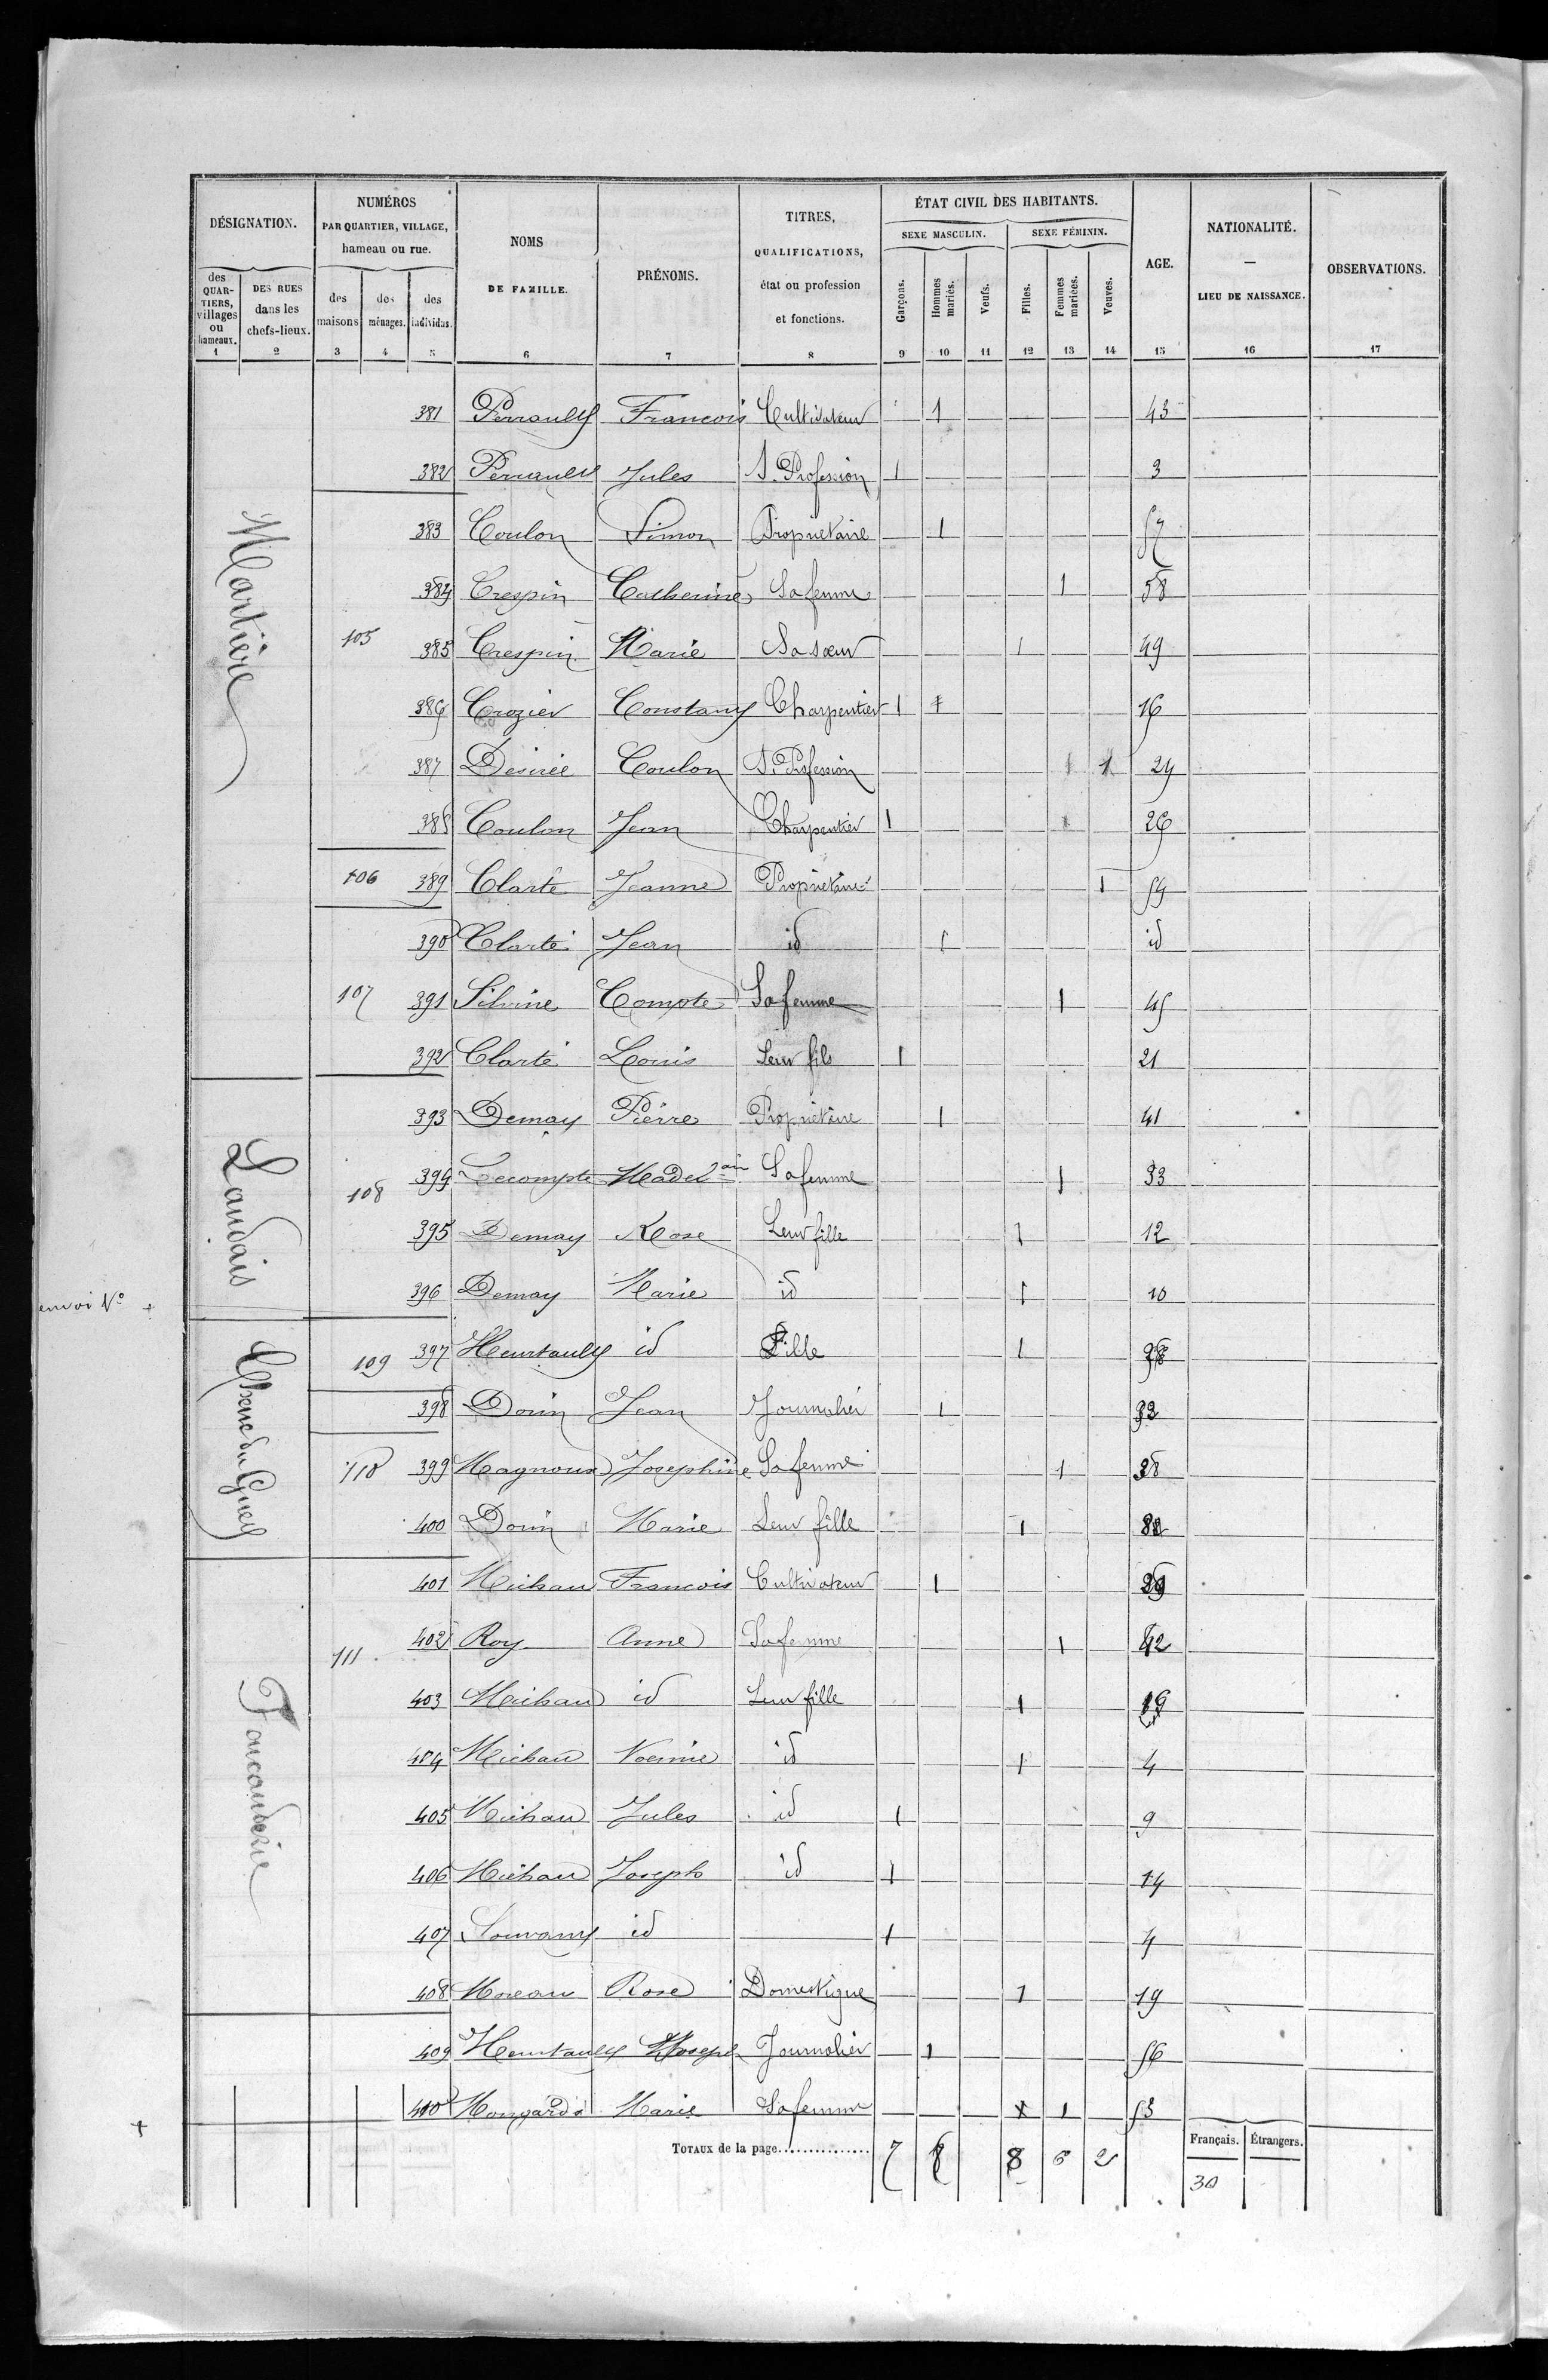 DÉSIGNATION.
des QUARTIERS, villages ou hameaux.
1
DES RUES dans les chefs-lieux.
2
NUMÉROS
PAR QUARTIER, VILLAGE, hameau ou rue.
des maisons
3
des ménages.
4
des individus.
5
NOMS
DE FAMILLE.
6
PRÉNOMS.
7
TITRES,
QUALIFICATIONS,
état ou profession
et fonctions.
8
ÉTAT CIVIL DES HABITANTS.
SEXE MASCULIN.
Garçons.
9
Hommes mariés.
10
Veufs.
11
SEXE FÉMININ.
Filles.
12
Femmes mariées.
13
Veuves.
14
AGE.
15
NATIONALITÉ.
—
LIEU DE NAISSANCE.
16
OBSERVATIONS.
17
Martière
381 Perrault Francois Cultivateur 1 43
382 Perrault Jules S. Profession 1 3
383 Coulon Simon Propriétaire 1 57
384 Crespin Catherine Sa femme 1 58
105 385 Crespin Marie Sa sœur 1 49
386 Crozier Constant Charpentier 1 16
387 Desirée Coulon S. Profession 1 24
388 Coulon Jean Charpentier 1 26
106 389 Clarté Jeanne Propriétaire 1 54
390 Clarté Jean id 1 id
107 391 Silvine Compte Sa femme 1 45
392 Clarté Louis Leur fils 1 21
Landais
393 Demay Pierre Propriétaire 1 41
108 394 Lecompte Sa femme 1 33
395 Demay Rose Leur fille 1 12
396 Demay Marie id 1 10
envoi No +
109 397 Heurtault id Fille 1
398 Dorin Jean Journalier 1
110 399 Magnoux Josephine Sa femme 1
400 Dorin Marie Leur fille 1
401 Michau Francois Cultivateur 1
111 402 Roy Anne Sa femme 1
403 Michau id Leur fille 1
404 Michau Noemie id 1 4
405 Michau Jules id 1 9
406 Michau Joseph id 1 14
407 id 1 4
408 Moreau Rose Domestique 1 19
409 Heurtault Joseph Journalier 1 56
410 Marie Sa femme 1 53
+
TOTAUX de la page 7 8 8 6 2
Français. Étrangers.
30